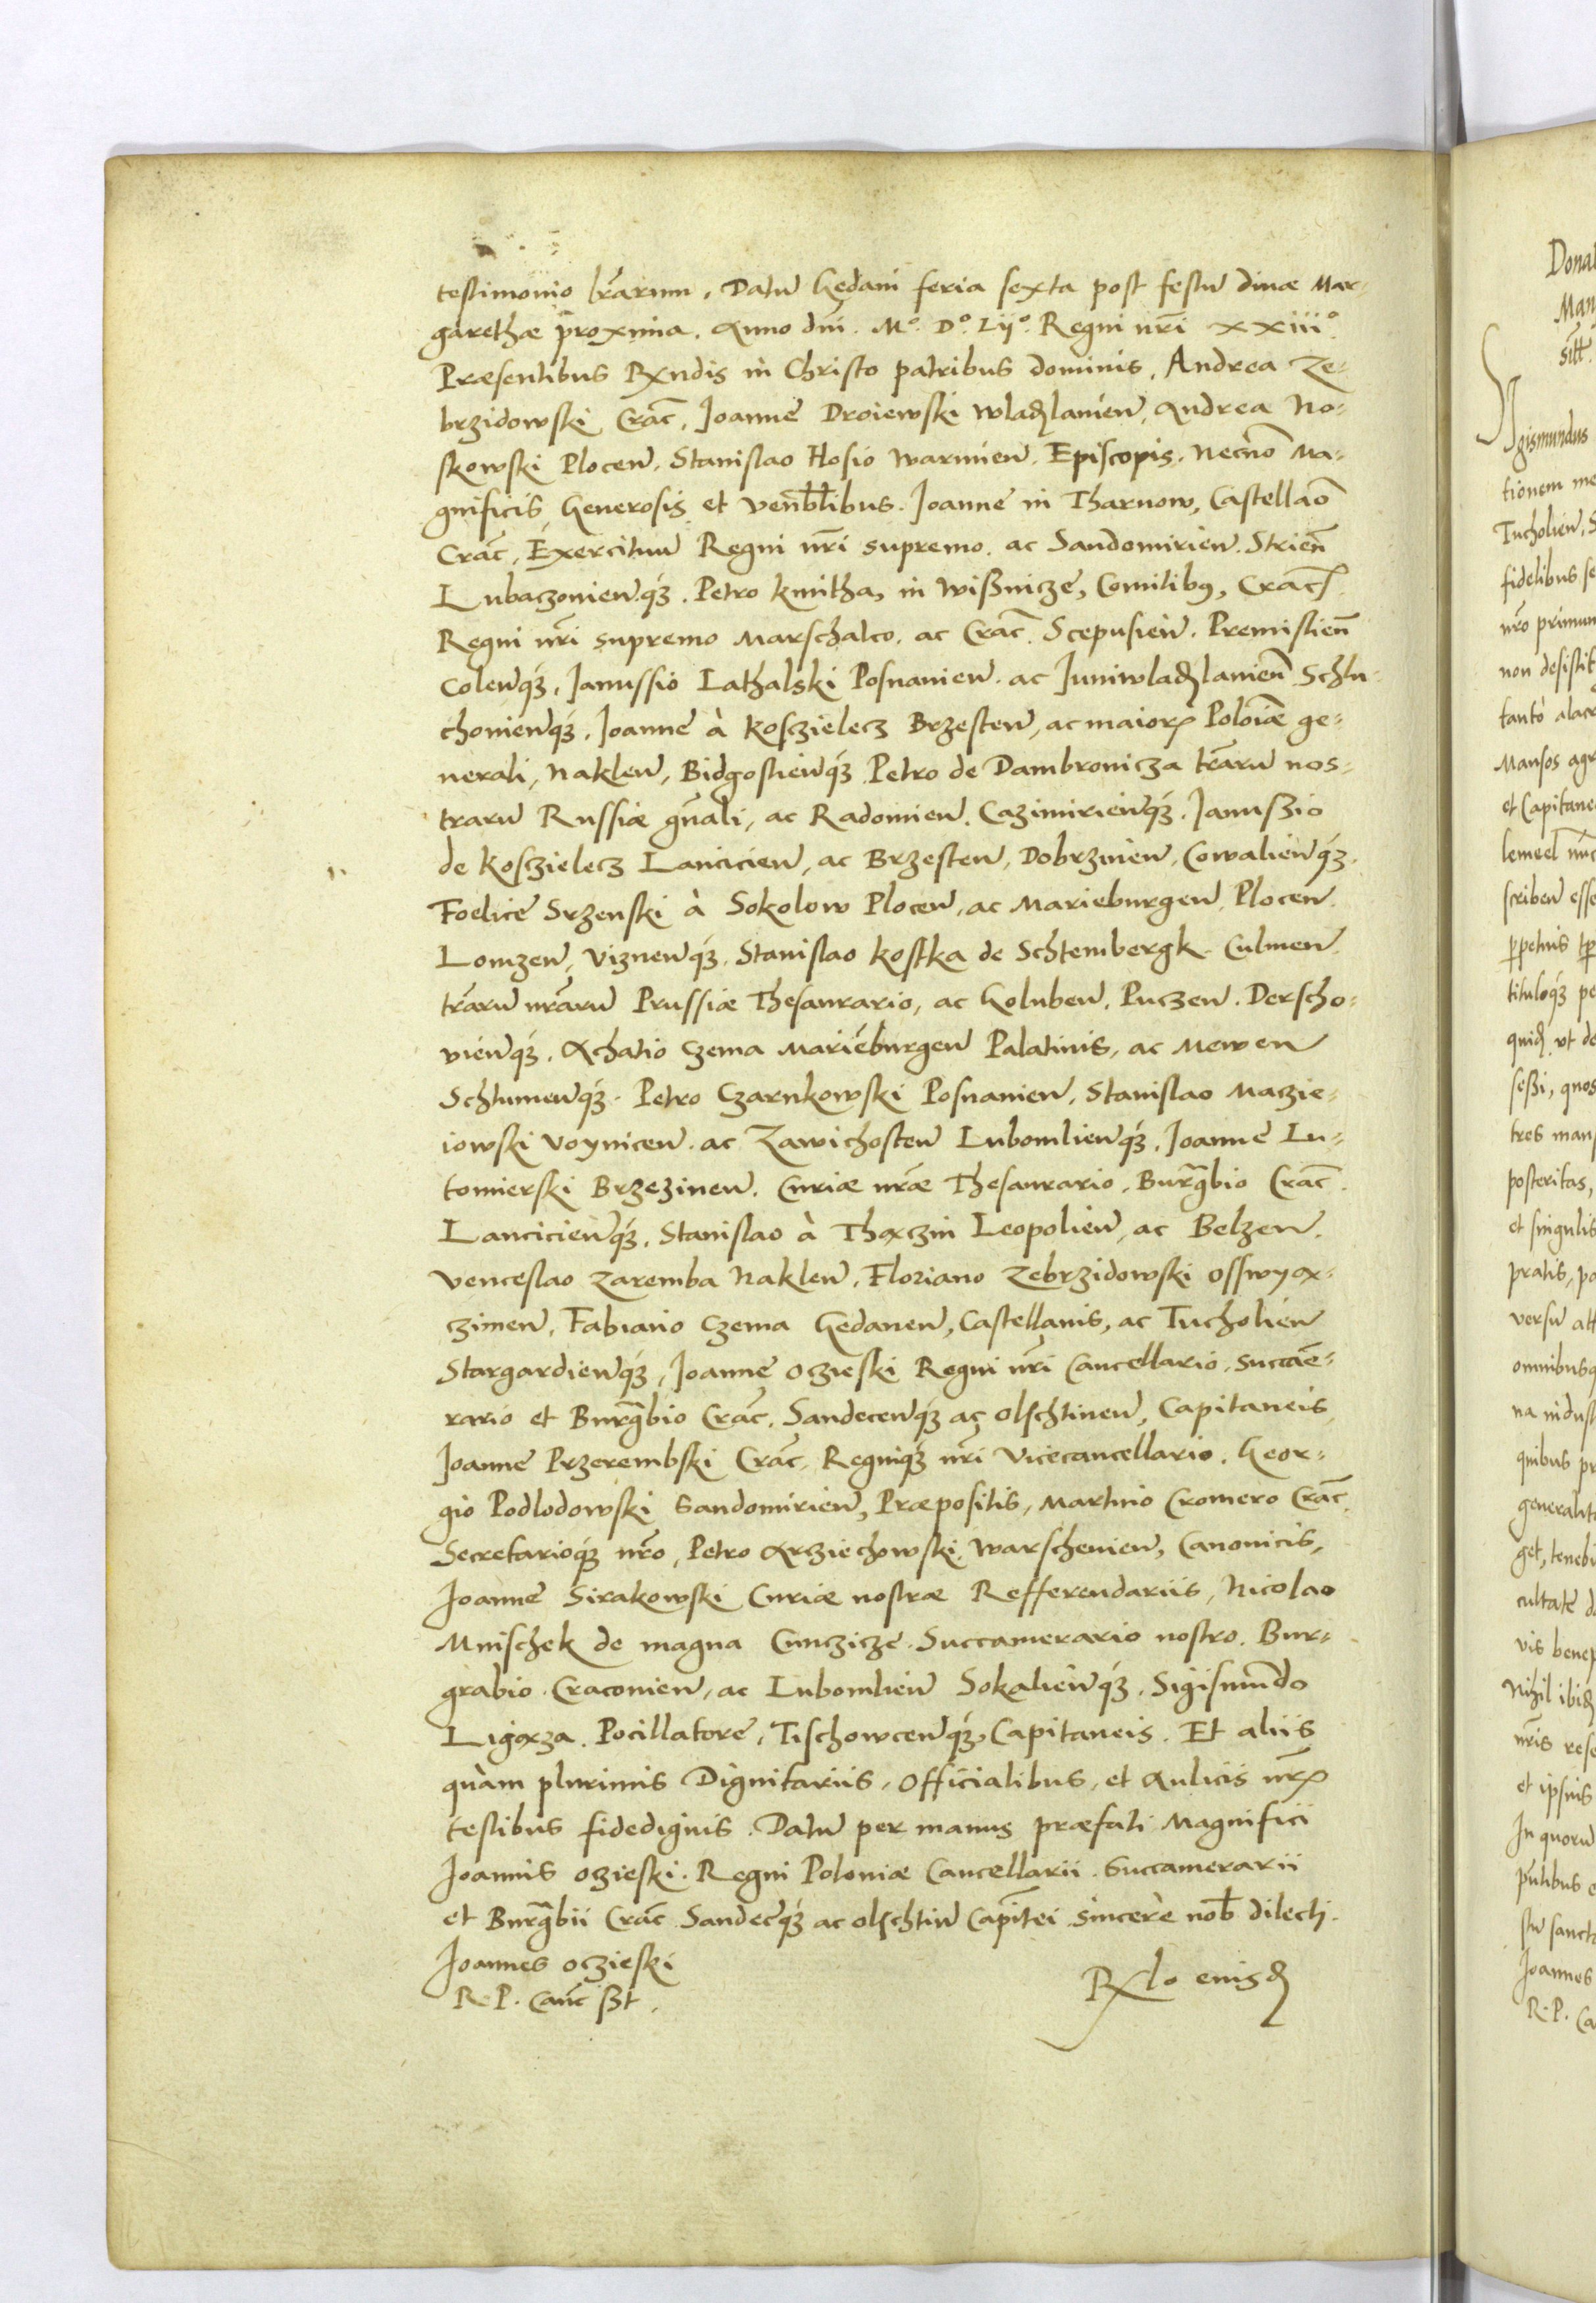 testimonio lrãrum. Datũ Gedani feria sexta post festũ diuæ Mar-
garethæ p̃roxima. Anno dñi. Mº. Dº. Lijº. Regni nr̃i xxiiiº
Præsentibus Rx̃ndis in Christo patribus dominis, Andrea Ze-
brzidowski Crac̃, Joanne Droiewski Wladzlauien̄, Andrea No-
skowski Plocen̄, Stanislao Hosio Warmien̄. Episcopis. Necnõ Ma-
gnificis, Generosis et Ven̄blibus. Joanne in Tharnow, Castellaõ
Crac̃, Exercituũ Regni nr̃i supremo. ac Sandomirien̄. Strien̄
Lubaczouien̄q́ʒ. Petro Kmitha, in Wißnicze, Comitibꝯ, Crac̃
Regni nr̃i supremo Marschalco. ac Crac̃. Scepusien̄. Premislien̄
Colen̄q́ʒ, Janussio Lathalski Posnanien̄. ac Juniwladzlauien̄ Schlu-
chouien̄q́ʒ, Joanne à Kosczielecz Brzesten̄, ac maiorꝝ Poloiæ̃ ge-
nerali, Naklen̄, Bidgostien̄q́ʒ Petro de Dambrowicza trãrũ nos-
trarũ Russiæ gñali, ac Radomien̄. Cazimirien̄q́ʒ. Janußio
de Kosczielecz Lancicien̄, ac Brzesten̄, Dobrzinien̄, Cowalien̄q́ʒ.
Foelice Srzenski à Sokolow Plocen̄, ac Marieburgen̄ Plocen̄.
Lomzen̄, Viznen̄q́ʒ. Stanislao Kostka de Schtembergk Culmen̄.
trãrũ nrãrũ Prussiæ Thesaurario, ac Goluben̄. Puczen̄. Derscho-
uien̄q́ʒ. Achatio Czema Marieburgen̄ Palatinis, ac Mewen̄
Schtumen̄q́ʒ. Petro Czarnkowski Posnanien̄, Stanislao Maczie-
iowski Voynicen̄. ac Zawichosten̄ Lubomlien̄q́ʒ, Joanne Lu-
tomierski Brzezinen̄. Curiæ nræ̃ Thesaurario. Burg̃bio Crac̃.
Lancicien̄q́ʒ, Stanislao à Thączin Leopolien̄, ac Belzen̄.
Venceslao Zaremba Naklen̄, Floriano Zebrzidowski Osswyą-
czimen̄, Fabiano Czema Gedanen̄, Castellanis, ac Tucholien̄
Stargardien̄q́ʒ, Joanne Oczieski Regni nr̃i Cancellario, Succaẽ-
rario et Burg̃bio Crac̃, Sandecen̄q́ʒ ac Olschtinen̄, Capitaneis
Joanne Przerembski Crac̃, Regniq́ʒ nr̃i Vicecancellario. Geor-
gio Podlodowski Sandomirien̄, Præpositis, Martino Cromero Crac̃
Secretarioq́ʒ nr̃o, Petro Arziechowski, Warscheuien̄, Canonicis,
Joanne Sirakowski Curiæ nostræ Refferendariis, Nicolao
Mnischek de magna Cunczicze Succamerario nostro. Bur-
grabio. Cracouien̄, ac Lubomlien̄ Sokalien̄q́ʒ, Sigismundo
Ligąza. Pocillatore, Tischowcen̄q́ʒ, Capitaneis. Et aliis
quàm plurimis Dignitariis, Officialibus, et Aulicis nrꝝ
testibus fidedignis. Datũ per manus præfati Magnifici
Joannis Oczieski. Regni Poloniæ Cancellarii. Succamerarii
et Burg̃bii Crac̃ Sandec̃q́ʒ ac Olschtin̄ Cap̃itei sincerè nob̄ dilecti.
Joannes Oczieski
R. P. Canc̃ ßt.
Rx̃lo eiusd̃
Dona
Man
gismundus
tionem me
Tucholien̄, S
fidelibus se
nr̃o primum
non desistit
Mansos agr
et Capitane
scriben̄ esse
posteritas,
et singulis
pratis, pa
omnibusq
na indust
quibus pr
get, tenebi
cultatẽ d
vis benep
Nihil ibid̃
nr̃is rese
et ipsius
In quorũ
Joannes
R. P. Ca